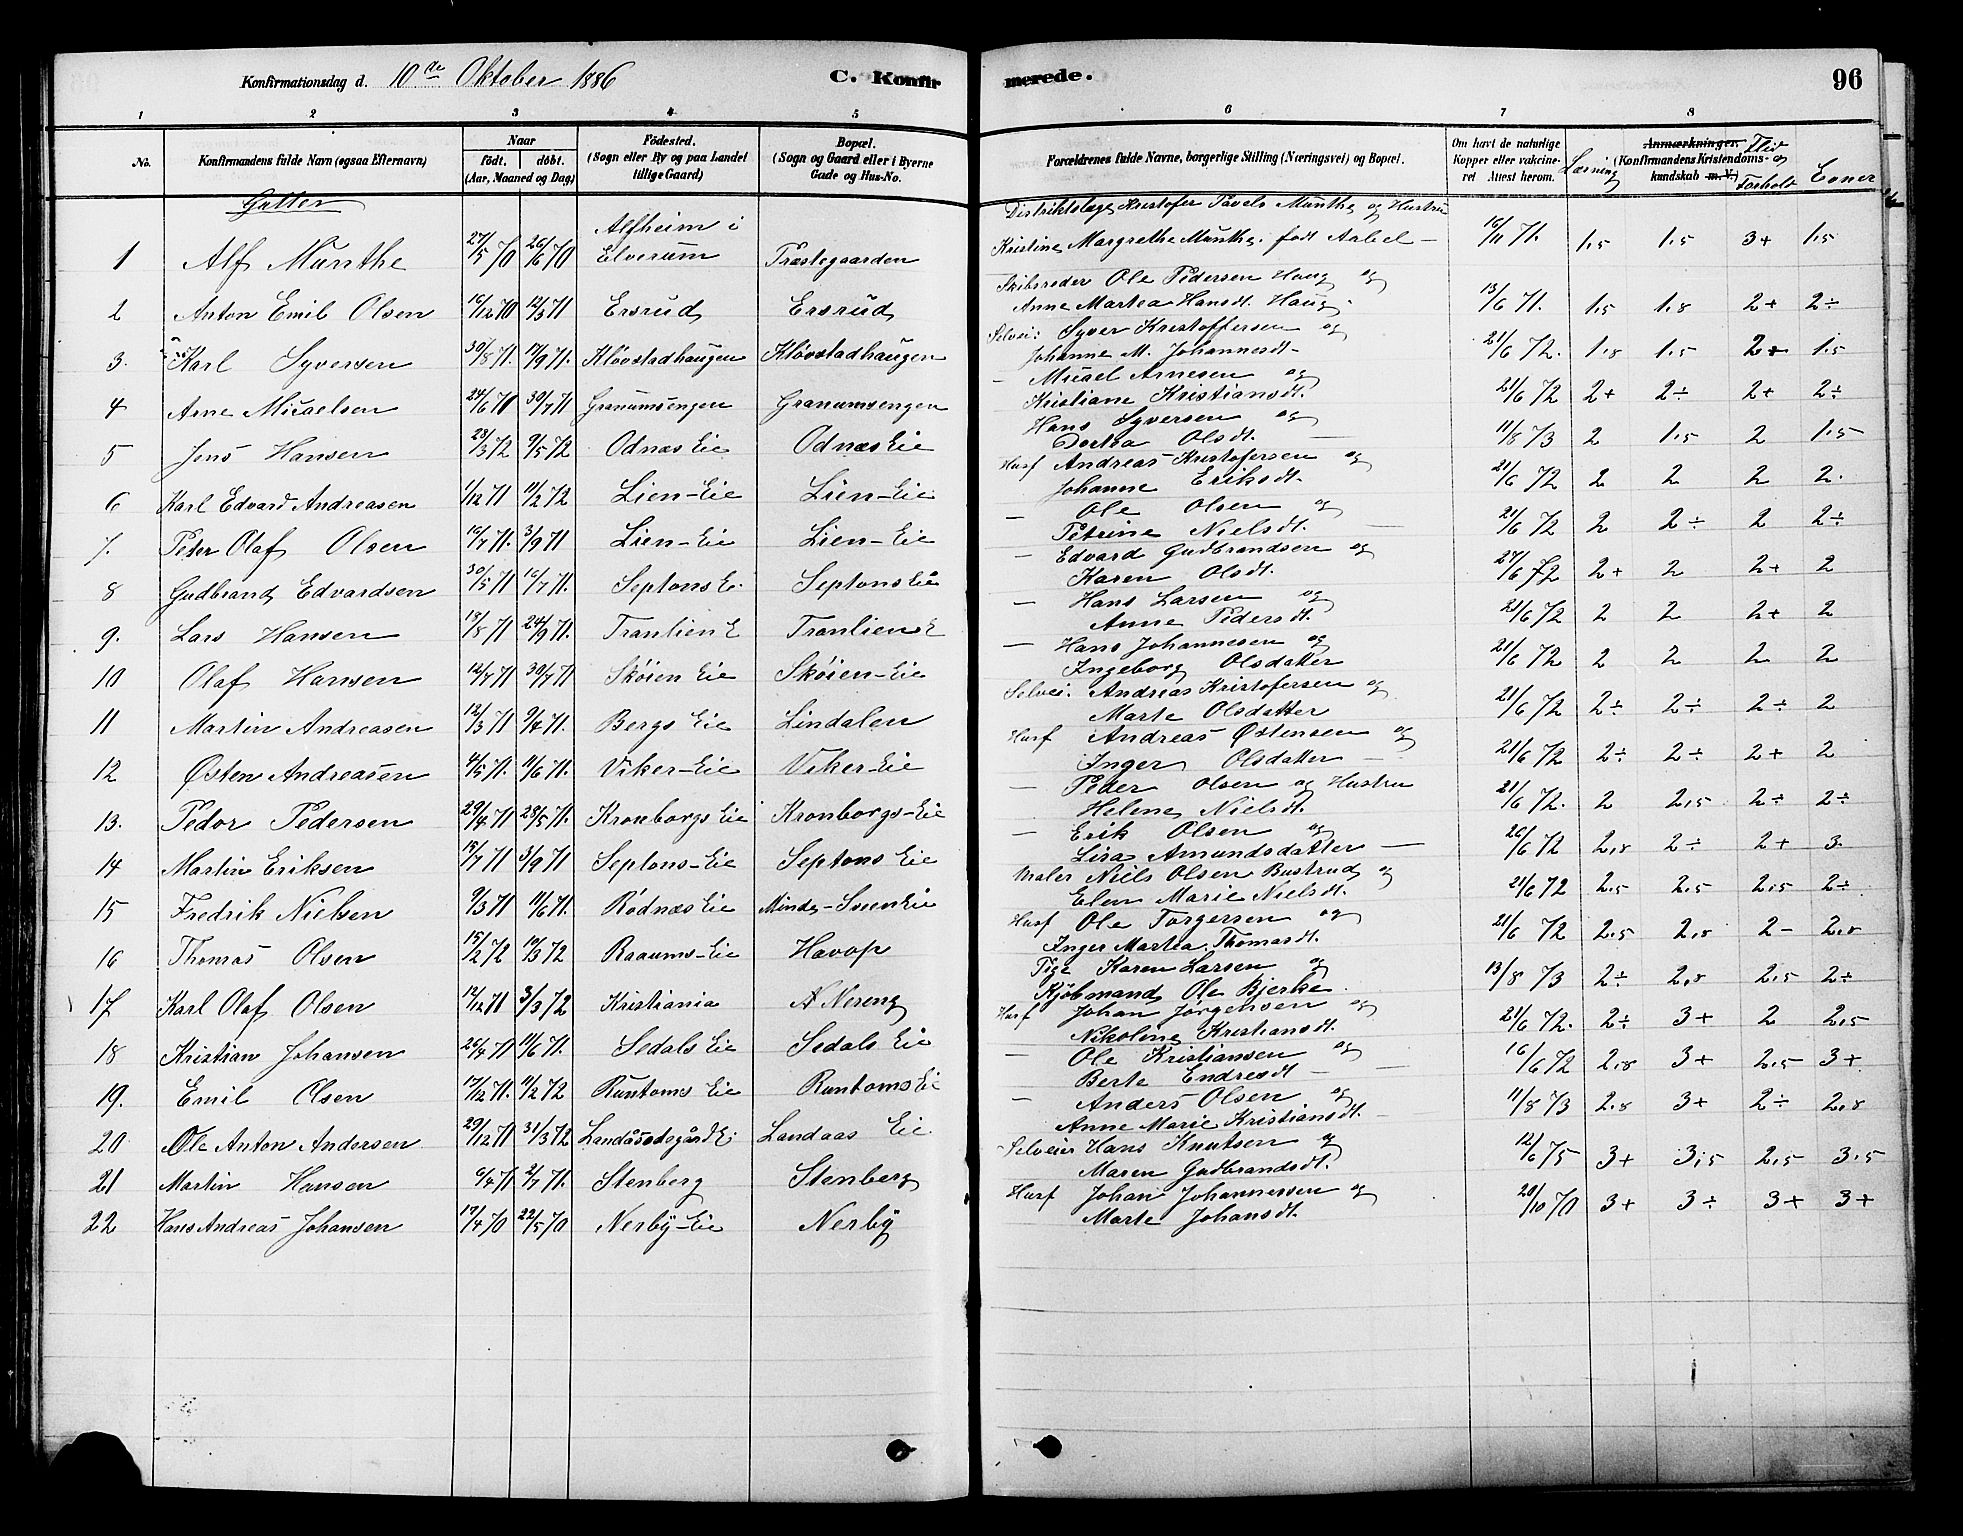 Konfirmationsdag d. 10de Oktober 1886 C. Konfirmerede. 96
1 2 3 4 5 6 7 8
No. Konfirmandens fulde Navn (ogsaa Efternavn) Naar født, døbt. (Aar, Maaned og Dag) Fødested. (Sogn eller By og paa Landet tillige Gaard) Bopæl. (Sogn og Gaard eller i Byerne Gade og Hus-No. Forældrenes fulde Navne, borgerlige Stilling (Næringsvei) og Bopæl. Om havt de naturlige Kopper eller vakcineret Attest herom. Læsning Anmærkninger. (Konfirmandens Kristendomskundskab m. V.) Flid og Forhold Evner
Gutter
1 Alf Munthe 27/5 70 26/6 70 Alfheim i Elverum Præstegaarden Distriktslæge Kristofer Pavels Munthe og Hustru Kristine Margrethe Munthe født Aabel – 16/11 71. 1.5 1.5 3+ 1.5
2 Anton Emil Olsen 16/12 70 12/3 71 Ersrud Ersrud Skibsreder Ole Pedersen Haug og Anne Martea Hansdt. Haug. 13/6 71. 1.5 1.8 2+ 2÷
3. Karl Syversen 30/8 71. 17/9 71. Kløvstadhaugen Kløvstadhaugen Selvei: Syver Kristoffersen og Johanne M. Johannesdt – 21/6 72. 1.8 1.5 2+ 1.5
4 Arne Micaelsen 24/6 71 30/7 71 Granumsengen Granumsengen – Micael Arnesen og Kristiane Kristiansdt. 21/6 72 2+ 2÷ 2+ 2÷
5 Jens Hansen 28/3 72 9/5 72 Odnæs Eie Odnæs Eie Hans Syversen og Dortea Olsdt. – 11/8 73 2 1.5 2 1.5
6 Karl Edvard Andreasen 1/12 71 11/2 72 Lien-Eie Lien-Eie Husf Andreas Kristofersen og Johanne Eriksdt. 21/6 72 2 2 2 2.
7. Peder Olaf Olsen 16/7 71. 3/9 71 Lien-Eie Lien-Eie – Ole Olsen og Petrine Nielsdt. – 21/6 72 2 2÷ 2 2÷
8 Gudbrand Edvardsen 30/5 71 16/7 71. Septons E. Septons Eie – Edvard Gudbrandsen og Karen Olsdt. 27/6 72 2+ 2 2+ 2
9. Lars Hansen 18/8 71 24/9 71. Tranlien E Tranliens E – Hans Larsen og Anne Pedersdt. 21/6 72 2 2 2+ 2
10 Olaf Hansen 12/7 71 30/7 71 Skøien Eie Skøien-Eie – Hans Johannesen og Ingeborg Olsdatter 21/6 72 2 2 2 2
11 Martin Andreasen 12/3 71 9/4 71. Bergs Eie Lindalen Selvei. Andreas Kristofersen og Marte Olsdatter 21/6 72 2÷ 2÷ 2÷ 2
12 Østen Andreasen 4/5 71. 11/6 71. Viker-Eie Viker-Eie Husf Andreas Østensen og Inger Olsdatter – 21/6 72 2÷ 2÷ 2+ 2
13. Peder Pedersen 29/4 71 28/5 71. Kronborgs Eie Kronborgs-Eie – Peder Olsen og Hustru Helene Nielsdt. 21/6 72. 2 2,5 2÷ 2÷
14 Martin Eriksen 18/7 71 3/9 71 Septons-Eie Septons Eie – Erik Olsen og Lisa Amundsdatter – 26/6 72 2,8 2÷ 2+ 3
15 Fredrik Nielsen 9/3 71 11/6 71. Rødnæs Eie Minde-Sveen Eie Maler Niels Olsen Bustrud og Elen Marie Nielsdt. 21/6 72 2.5 2.5 2,5 2÷
16 Thomas Olsen 15/2 72 10/3 72 Raaums-Eie Havop Husf Ole Torgersen og Inger Martea Thomasdt. 21/6 72 2.5 2,8 2- 2,8
17 Karl Olaf Olsen 12/12 71 3/3 72 Kristiania N. Nereng Pige Karen Larsen og Kjøbmand Ole Bjerke 13/8 73 2÷ 2,8 2,5 2÷
18 Kristian Johansen 26/4 71 11/6 71. Sedals Eie Sedals Eie Husf Johan Jørgensen og Nikoline Kristiansdt. 21/6 72. 2÷ 3+ 2 2,5
19. Emil Olsen 17/12 71. 11/2 72 Runtoms Eie Runtoms Eie – Ole Kristiansen og Berte Endresdt – 16/6 72 2,8 3+ 2,5 3+
20 Ole Anton Andersen 29/12 71 31/3 72 Landåsødegård E. Landaas Eie – Anders Olsen og Anne Marie Kristiansdt. – 11/8 73 2.8 3+ 2÷ 2,8
21 Martin Hansen 6/4 71 2/7 71. Stenberg Stenberg Selveier Hans Knutsen og Maren Gudbrandsdt. 12/6 75 3+ 3,5 2,5 3.5
22 Hans Andreas Johansen 17/4 70 22/5 70 Nerby-Eie Nerby Husf Johan Johannessen og Marte Johansdt. 20/10 70 3+ 3÷ 3+ 3+